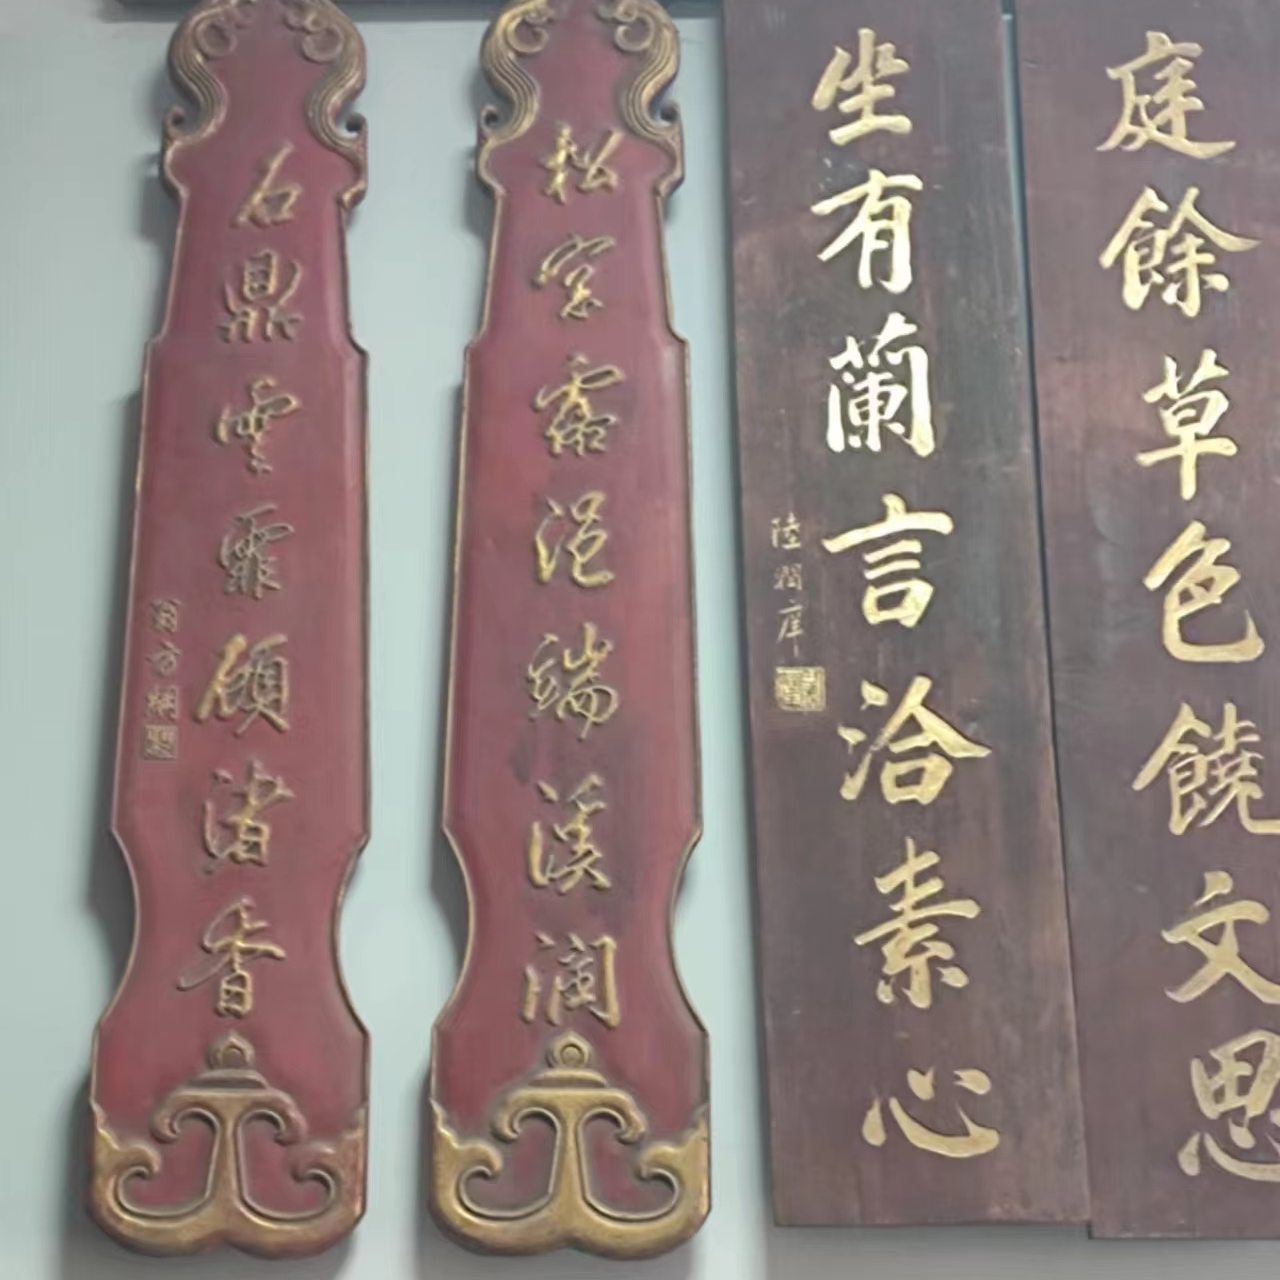 庭餘草色饒文思
坐有蘭言洽素心
陸潤庠
松窗露浥端溪潤
石鼎雲霏顧渚香
翁方綱